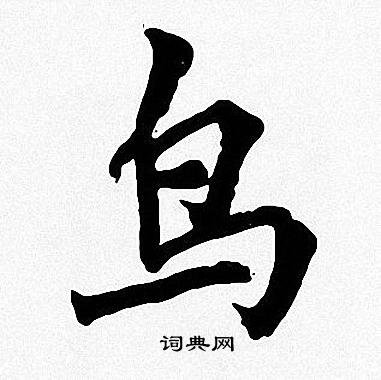 鸟
词典网